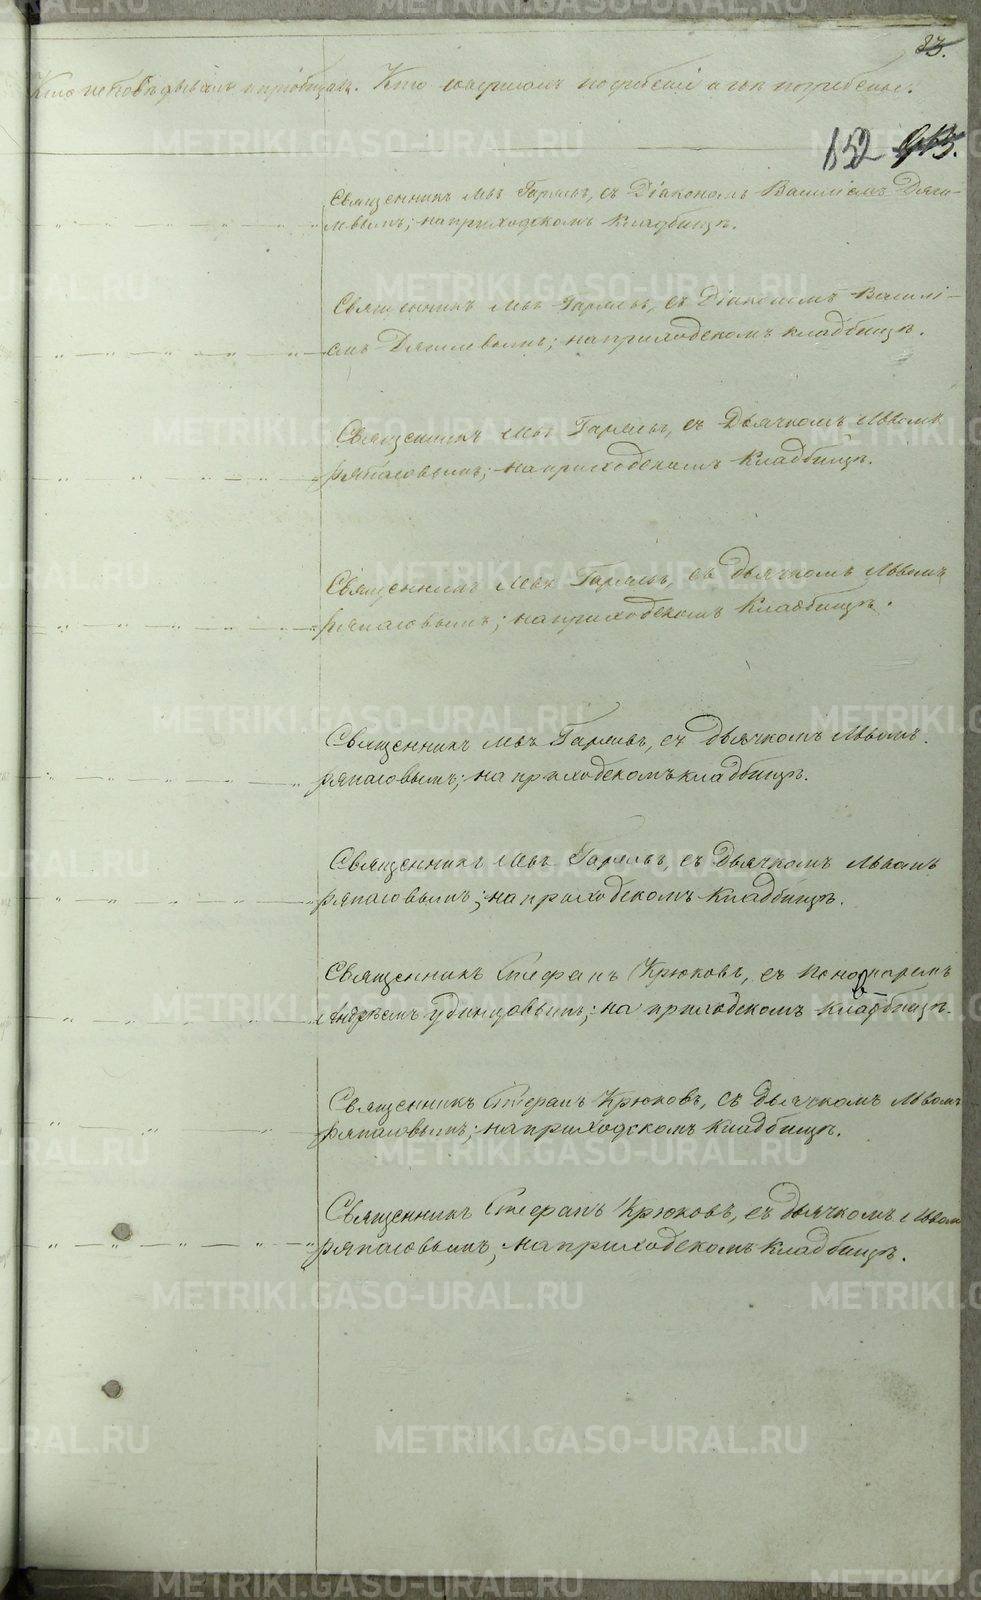 83.
Кто исповѣдывалъ и пріобщалъ. Кто совершалъ погребеніе и гдѣ погребены.
152
Священникъ Левъ Гаряевъ, съ Діакономъ Василіемъ Дяги-
левымъ; на приходскомъ кладбищѣ.
Священникъ Левъ Гаряевъ, съ Діакономъ Василі-
емъ Дягилевымъ; на приходскомъ кладбищѣ.
Священникъ Левъ Гаряевъ, съ Дьячкомъ Львомъ
Ряпасовымъ; на приходскомъ Кладбищѣ.
Священникъ Левъ Гаряевъ, съ дьячкомъ Львомъ
Ряпасовымъ; на приходскомъ Кладбищѣ.
Священникъ Левъ Гаряевъ, съ дьячкомъ Львомъ
Ряпасовымъ; на приходскомъ кладбищѣ.
Священникъ Левъ Гаряевъ, съ Дьячкомъ Львомъ
Ряпасовымъ; на приходскомъ Кладбищѣ.
Священникъ Стефанъ Крюковъ, съ Пономаремъ
Удинцовымъ; на приходскомъ Кладбищѣ.
Священникъ Стефанъ Крюковъ, съ дьячкомъ Львомъ
Ряпасовымъ; на приходскомъ Кладбищѣ.
Священникъ Стефанъ Крюковъ, съ дьячкомъ Львомъ
Ряпасовымъ; на приходскомъ Кладбищѣ.
METRIKI.GASO-URAL.RU